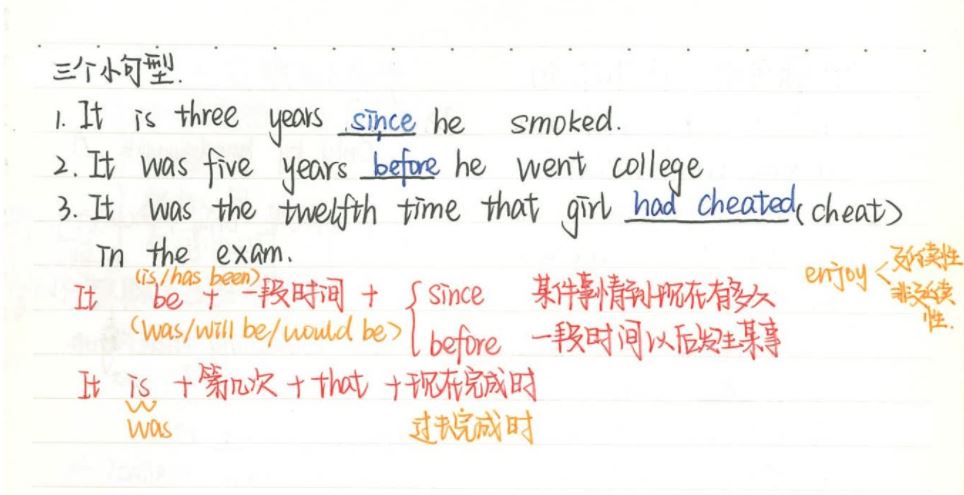 三个小句型.
1. It is three years since he smoked.
2. It was five years before he went college
3. It was the twelfth time that girl had cheated(cheat)
in the exam.
(is/has been)
It be + 一段时间 + { since 某件事情到现在有多久
(was/will be/would be) before 一段时间以后发生某事
enjoy < 延续性
非延续性.
It is + 第几次 + that + 现在完成时
was 过去完成时